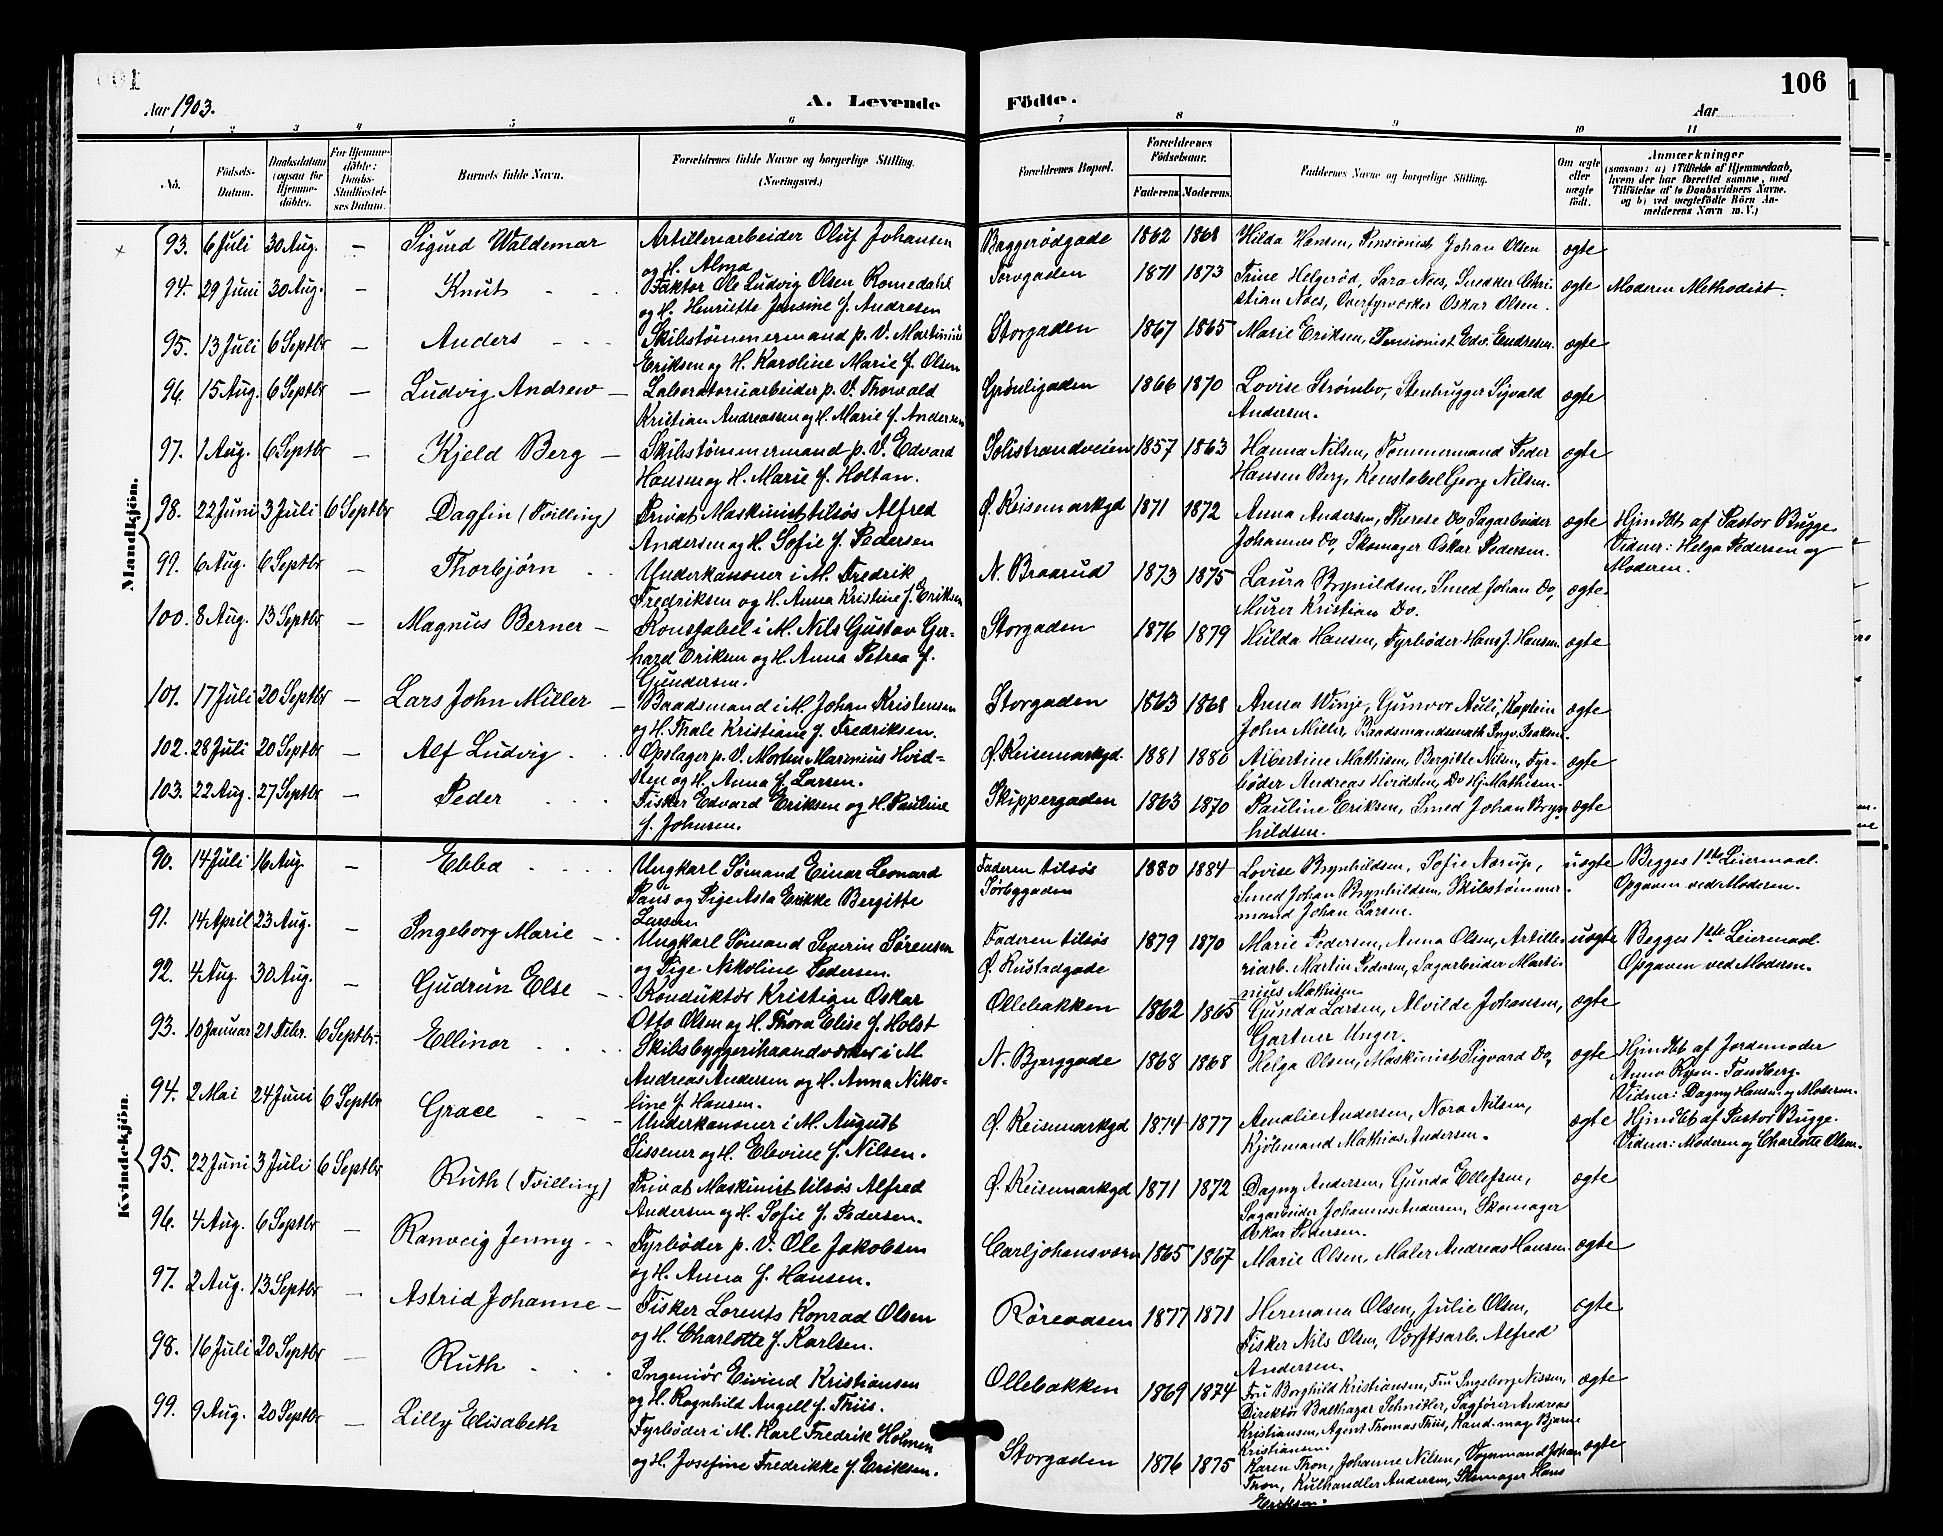 106
Aar 1903.
A. Levende Födte.
Aar
1 2 3 4 5 6 7 8 9 10 11
No.
Födsels-Datum.
Daabsdatum (ogsaa for Hjemmedöbte).
For Hjemmedöbte: Daabs-Stadfæstelses Datum.
Barnets fulde Navn.
Forældrenes fulde Navne og borgerlige Stilling. (Næringsvei.)
Forældrenes Bopæl.
Forældrenes Födselsaar.
Faderens Moderens
Faddernes Navne og borgerlige Stilling.
Om ægte eller uægte födt.
Anmærkninger (saasom: a) i Tilfælde af Hjemmedaab, hvem der har forrettet samme, med Tilföielse af to Daabsvidners Navne. og b) ved uægtefödte Börn Anmelderens Navn m. V.)
Mandkjön.
93. 6 Juli 30 Aug. — Sigurd Waldemar Artilleriarbeider Oluf Johansen og H. Alma Baggerödgade 1862 1868 Hilda Hansen, Pensionist Johan Olsen ægte
94. 29 Juni 30 Aug. — Knut Faktor Ole Ludvig Olsen Romedahl og H. Henriette Jensine f. Andresen Torvgaden 1871 1873 Trine Helgerød, Sara Noes, Snedker Christian Noes, Overfyrværker Oskar Olsen. ægte Moderen Methodist.
95. 13 Juli 6 Septbr — Anders Skibstømmermand p. V. Martinius Eriksen og H. Karoline Marie f. Olsen Storgaden 1867 1865 Marie Eriksen, Pensionist Edv. Endresen ægte
96. 15 Aug. 6 Septbr — Ludvig Andrew Laboratoriearbeider p. V. Thorvald Kristian Andreassen og H. Marie f. Andersen Grønligaden 1866 1870 Lovise Strømbo, Stenhugger Sigvald Andersen. ægte
97. 1 Aug. 6 Septbr — Kjeld Berg Skibstømmermand p. V. Edvard Hansen og H. Marie f. Holtan. Solistrandveien 1857 1863 Hanna Nilsen, Tømmermand Peder Hansen Berg, Konstabel Georg Nilsen. ægte
98. 22 Juni 3 Juli 6 Septbr Dagfin (Tvilling) Privat Maskinist tilsøs Alfred Andersen og H. Sofie f. Pedersen Ø. Keisemarkgd 1871 1872 Anna Andersen, Therese Do, Sagarbeider Johannes Do, Skomager Oskar Pedersen. ægte Hjmdbt af Pastor Bugge Vidner: Helga Pedersen og Moderen.
99. 6 Aug. 6 Septbr — Thorbjörn Underkanoner i M. Fredrik Fredriksen og H. Anna Kristine f. Eriksen N. Braarud 1873 1875 Laura Brynildsen, Smed Johan Do, Murer Kristian Do. ægte
100. 8 Aug. 13 Septbr — Magnus Berner Konstabel i M. Nils Gustav Gerhard Eriksen og H. Anna Petrea f. Gundersen. Storgaden 1876 1879 Hulda Hansen, Fyrbøder Hans J. Hansen ægte
101. 17 Juli 20 Septbr — Lars John Miller Baadsmand i M. Johan Kristensen og H. Thale Kristiane f. Fredriksen. Storgaden 1863 1868 Anna Winje, Gunvor Auli, Kaptein John Miller, Baadsmandsmath Ingv. Isaksen. ægte
102. 28 Juli 20 Septbr — Alf Ludvig Opslager p. V. Morten Marinius Hvidsten og H. Anna f. Larsen. Ø. Keisemarkgd. 1881 1880 Albertine Mathisen, Bergitte Nilsen, Fyrbøder Andreas Hvidsten, Do Hj. Mathisen. ægte
103. 22 Aug. 27 Septbr — Peder Fisker Edvard Eriksen og H. Pauline f. Johnsen. Skippergaden 1863 1870 Pauline Eriksen, Smed Johan Brynhildsen. ægte
Kvindekjön.
90. 14 Juli 16 Aug. — Ebba Ungkarl Sømand Einar Leonard Saus og Pige Asta Erikke Bergitte Larsen Faderen tilsøs Sørbyggaden 1880 1884 Lovise Brynhildsen, Sofie Nærup, Smed Johan Brynhildsen, Skibstømmermand Johan Larsen. uægte Begges 1ste Leiermaal. Opgaven ved Moderen.
91. 14 April 23 Aug. — Ingeborg Marie Ungkarl Sømand Severin Sørensen og Pige Nikoline Pedersen. Faderen tilsøs Ø. Rustadgade 1879 1870 Marie Pedersen, Anna Olsen, Artilleriarb. Martin Pedersen, Sagarbeider Martinius Mathisen uægte Begges 1ste Leiermaal. Opgaven ved Moderen.
92. 4 Aug. 30 Aug. — Gudrun Else Konduktør Kristian Oskar Otto Olsen og H. Thora Elise f. Holst Ollebakken 1862 1865 Gunda Larsen, Alvilde Johansen, Gartner Unger. ægte
93. 10 Januar 21 Febr. 6 Septbr. Ellinor Skibsbyggerihaandværker i M Andreas Andersen og H. Anna Nikoline f. Hansen. N. Bjerggade 1868 1868 Helga Olsen, Maskinist Sigvard Do, ægte Hjmdbt af Jordemoder Anna Tandberg. Vidner: Dagny Hansen og Moderen.
94. 2 Mai 24 Juni 6 Septbr Grace Underkanoner i M. August Sissener og H. Elevine f. Nilsen. Ø. Keisemarkgd 1874 1877 Amalie Andersen, Nora Nilsen, Kjöbmand Mathias Andersen. ægte Hjmdbt af Pastor Bugge. Vidner: Moderen og Charlotte Olsen.
95. 22 Juni 3 Juli 6 Septbr Ruth (Tvilling) Privat Maskinist tilsøs Alfred Andersen og H. Sofie f. Pedersen. Ø. Keisemarkgd 1871 1872 Dagny Andersen, Gunda Ellefsen, Sagarbeider Johannes Andersen, Skomager Oskar Pedersen. ægte
96. 4 Aug. 6 Septbr — Ranveig Jenny Fyrbøder p. V. Ole Jakobsen og H. Anna f. Hansen. Carljohansværn 1865 1867 Marie Olsen, Maler Andreas Hansen ægte
97. 2 Aug. 13 Septbr — Astrid Johanne Fisker Lorents Konrad Olsen og H. Charlotte f. Karlsen. Røreaasen 1877 1871 Hermana Olsen, Julie Olsen, Fisker Nils Olsen, Værftsarb. Alfred Andersen. ægte
98. 16 Juli 20 Septbr — Ruth Ingeniør Eivind Kristiansen og H. Ragnhild Angell f. Thiis. Ollebakken 1869 1874 Fru Borghild Kristiansen, Fru Ingeborg Nissen, Direktør Balthazar Schnitler, Sagfører Andreas Kristiansen, Agent Thomas Thiis, Kand. mag. Bjarne Kristiansen. ægte
99. 9 Aug. 20 Septbr — Lilly Elisabeth Fyrbøder i M. Karl Fredrik Holmen og H. Josefine Fredrikke f. Eriksen. Storgaden 1876 1875 Karen Thon, Johanne Nilsen, Vognmand Johan Thon, Kulhandler Andersen, Skomager Hans Eriksen. ægte